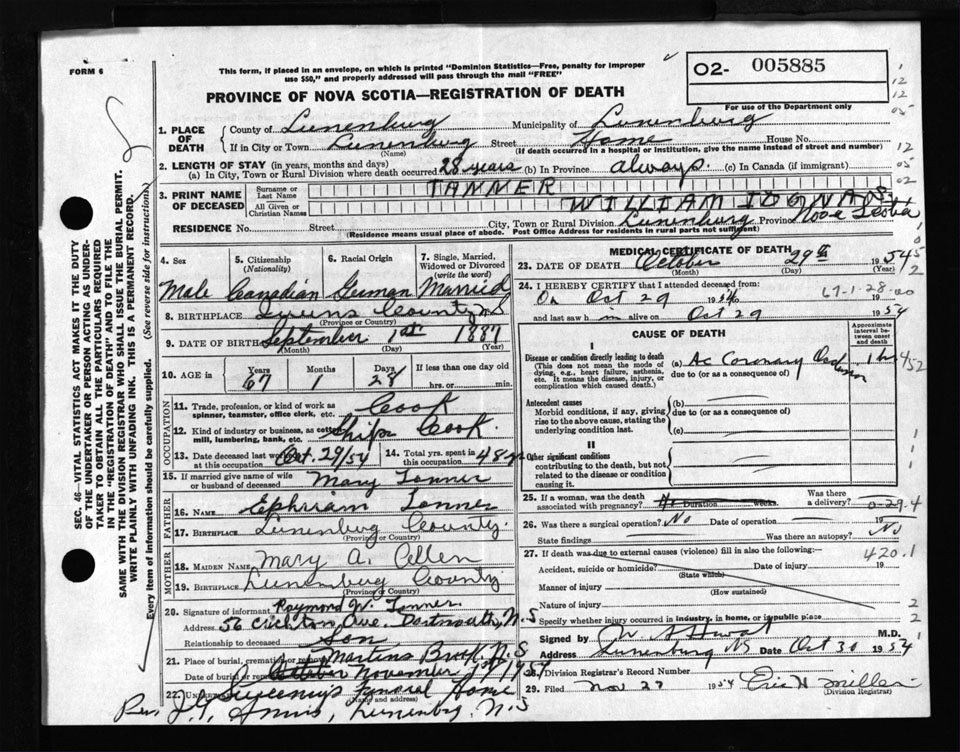 FORM 6
This form, if placed in an envelope, on which is printed "Dominion Statistics—Free, penalty for improper
use $50," and properly addressed will pass through the mail "FREE"
O2- 005885
For use of the Department only
PROVINCE OF NOVA SCOTIA—REGISTRATION OF DEATH
1. PLACE OF DEATH
County of Lunenburg Municipality of Lunenburg
If in City or Town Lunenburg Street Home House No.
(Name) (If death occurred in a hospital or institution, give the name instead of street and number)
2. LENGTH OF STAY (in years, months and days)
(a) In City, Town or Rural Division where death occurred 28 years (b) In Province always. (c) In Canada (if immigrant)
3. PRINT NAME OF DECEASED
Surname or Last Name TANNER
All Given or Christian Names WILLIAM IGNAS
RESIDENCE No. Street City, Town or Rural Division Lunenburg Province Nova Scotia
(Residence means usual place of abode. Post Office Address for residents in rural parts not sufficient)
4. Sex Male
5. Citizenship (Nationality) Canadian
6. Racial Origin German
7. Single, Married, Widowed or Divorced (write the word) Married
8. BIRTHPLACE County N.S
(Province or Country)
9. DATE OF BIRTH September 1st 1887
(Month) (Day) (Year)
10. AGE Years 67 Months 1 Days 28 If less than one day
hrs. or min.
OCCUPATION
11. Trade, profession, or kind of work as
spinner, teamster, office clerk, etc. Cook
12. Kind of industry or business, as cotton
mill, lumbering, bank, etc. Ships Cook.
13. Date deceased last worked
at this occupation Oct. 29/54
14. Total yrs. spent in
this occupation 48 yrs
15. If married give name of wife
or husband of deceased Mary Tanner
FATHER
16. Name Ephriam Tanner
17. Birthplace Lunenburg County.
(Province or Country)
MOTHER
18. MAIDEN NAME Mary A.
19. BIRTHPLACE Lunenburg County
(Province or Country)
20. Signature of informant Raymond W. Tanner
Address 56 Crichton Ave. Dartmouth, N.S
Relationship to deceased Son
21. Place of burial, cremation or removal Martins Brook N S
October November 1st/1954
22. Undertaker Sweeny's Funeral Home
(Name and address)
Rev. Lunenburg, N.S
MEDICAL CERTIFICATE OF DEATH
23. DATE OF DEATH October 29th 1954
(Month) (Day) (Year)
24. I HEREBY CERTIFY that I attended deceased from:
On Oct 29 1954 to 19
67-1-28-00
and last saw him alive on Oct 29 1954
CAUSE OF DEATH
Approximate interval between onset and death
I
Disease or condition directly leading to death
(This does not mean the mode of dying, e.g., heart failure, asthenia, etc. It means the disease, injury, or complication which caused death.)
(a) Ac Coronary Occlusion 1 hr
due to (or as a consequence of)
452
Antecedent causes
Morbid conditions, if any, giving rise to the above cause, stating the underlying condition last.
(b)
due to (or as a consequence of)
(c)
II
Other significant conditions
contributing to the death, but not related to the disease or condition causing it.
25. If a woman, was the death
associated with pregnancy? Duration weeks. Was there
a delivery?
0-29.4
26. Was there a surgical operation? No Date of operation 19
State findings Was there an autopsy? No
27. If death was due to external causes (violence) fill in also the following:
420.1
Accident, suicide or homicide? Date of injury 19
(State which)
Manner of injury
(How sustained)
Nature of injury
Specify whether injury occurred in industry, in home, or in public place
Signed by M.D.
Address Lunenburg NS Date Oct 30 1954
28. Division Registrar's Record Number
29. Filed Nov 27 1954 Eric H Miller
(Division Registrar)
SEC. 46—VITAL STATISTICS ACT MAKES IT THE DUTY
OF THE UNDERTAKER OR PERSON ACTING AS UNDER-
TAKER TO OBTAIN ALL THE PARTICULARS REQUIRED
IN THE "REGISTRATION OF DEATH" AND TO FILE THE
SAME WITH THE DIVISION REGISTRAR WHO SHALL ISSUE THE BURIAL PERMIT.
WRITE PLAINLY WITH UNFADING INK. THIS IS A PERMANENT RECORD.
Every item of information should be carefully supplied. (See reverse side for instructions)